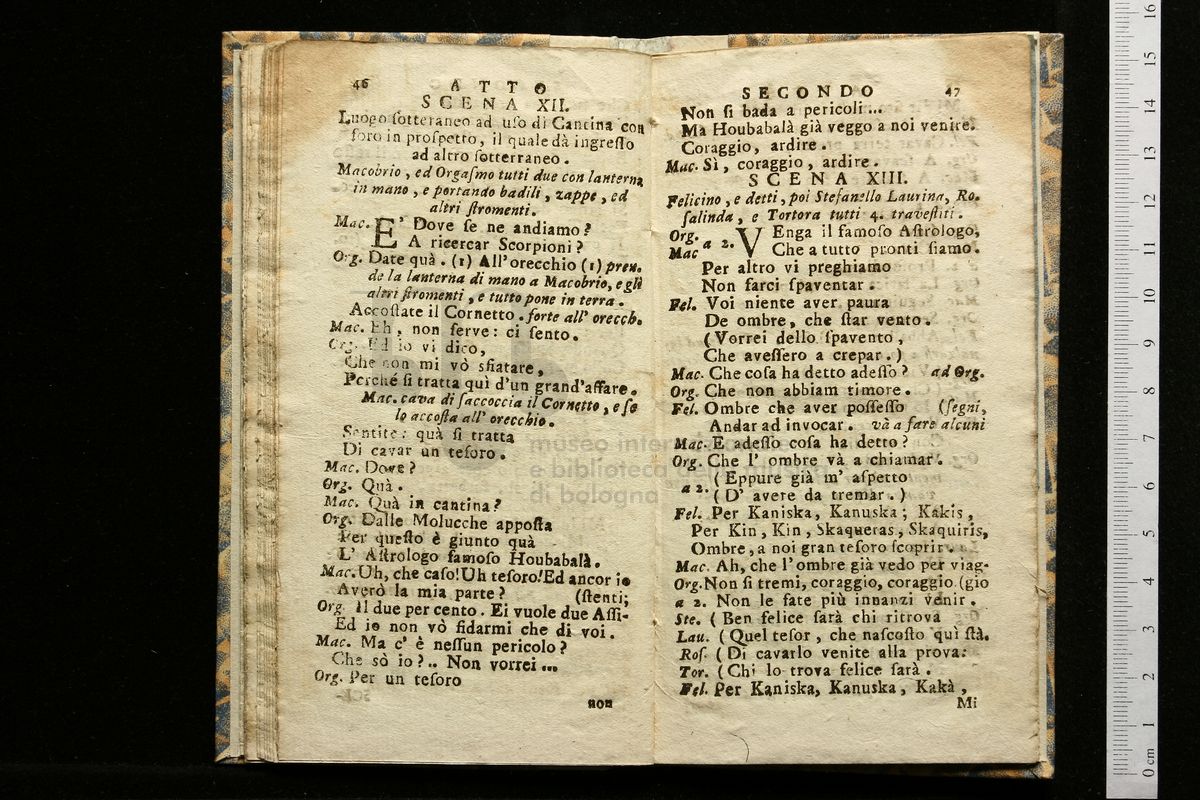 46
ATTO
SCENA XII.
Luogo ſotteraneo ad uſo di Cantina con
foro in proſpetto, il quale dà ingreſſo
ad altro ſotterraneo.
Macobrio, ed Orgaſmo tutti due con lanterna
in mano, e portando badili, zappe, ed
altri ſtromenti.
Mac. E' Dove ſe ne andiamo?
A ricercar Scorpioni?
Org. Date quà. (1) All'orecchio (1) pren.
de la lanterna di mano a Macobrio, e gli
altri ſtromenti, e tutto pone in terra.
Accoſtate il Cornetto. forte all' orecch.
Mac. Eh, non ſerve: ci ſento.
Org. Ed io vi dico,
Che non mi vò sfiatare,
Perché ſi tratta quì d'un grand'affare.
Mac. cava di ſaccoccia il Cornetto, e ſe
lo accoſta all' orecchio.
Sentite: quà ſi tratta
Di cavar un teſoro.
Mac. Dove?
Org. Quà.
Mac. Quà in cantina?
Org. Dalle Molucche appoſta
Per queſto è giunto quà
L' Aſtrologo famoſo Houbabalà.
Mac. Uh, che caſo! Uh teſoro! Ed ancor io
Averò la mia parte? (ſtenti;
Org. Il due per cento. Ei vuole due Aſſi-
Ed io non vò fidarmi che di voi.
Mac. Ma c' è neſſun pericolo?
Che sò io?.. Non vorrei...
Org. Per un teſoro
non
SECONDO
47
Non ſi bada a pericoli...
Ma Houbabalà già veggo a noi venire.
Coraggio, ardire.
Mac. Sì, coraggio, ardire.
SCENA XIII.
Felicino, e detti, poi Stefanello Laurina, Ro.
ſalinda, e Tortora tutti 4. traveſtiti.
Org.
Mac
a 2. VEnga il famoſo Aſtrologo,
Che a tutto pronti ſiamo.
Per altro vi preghiamo
Non farci ſpaventar.
Fel. Voi niente aver paura
De ombre, che ſtar vento.
(Vorrei dello ſpavento,
Che aveſſero a crepar.)
Mac. Che coſa ha detto adeſſo? ad Org.
Org. Che non abbiam timore.
Fel. Ombre che aver poſſeſſo (ſegni,
Andar ad invocar. và a fare alcuni
Mac. E adeſſo coſa ha detto?
Org. Che l' ombre và a chiamar.
a 2. (Eppure già m' aſpetto
(D' avere da tremar.)
Fel. Per Kaniska, Kanuska; Kakis,
Per Kin, Kin, Skaqueras, Skaquiris,
Ombre, a noi gran teſoro ſcoprir.
Mac. Ah, che l' ombre già vedo per viag-
Org. Non ſi tremi, coraggio, coraggio. (gio
a 2. Non le fate più innanzi venir.
Ste. (Ben felice ſarà chi ritrova
Lau. (Quel teſor, che naſcoſto quì ſtà.
Roſ. (Di cavarlo venite alla prova:
Tor. (Chi lo trova felice ſarà.
Fel. Per Kaniska, Kanuska, Kakà,
Mi
museo inter
e biblioteca
di bologna
0 cm 1 2 3 4 5 6 7 8 9 10 11 12 13 14 15 16